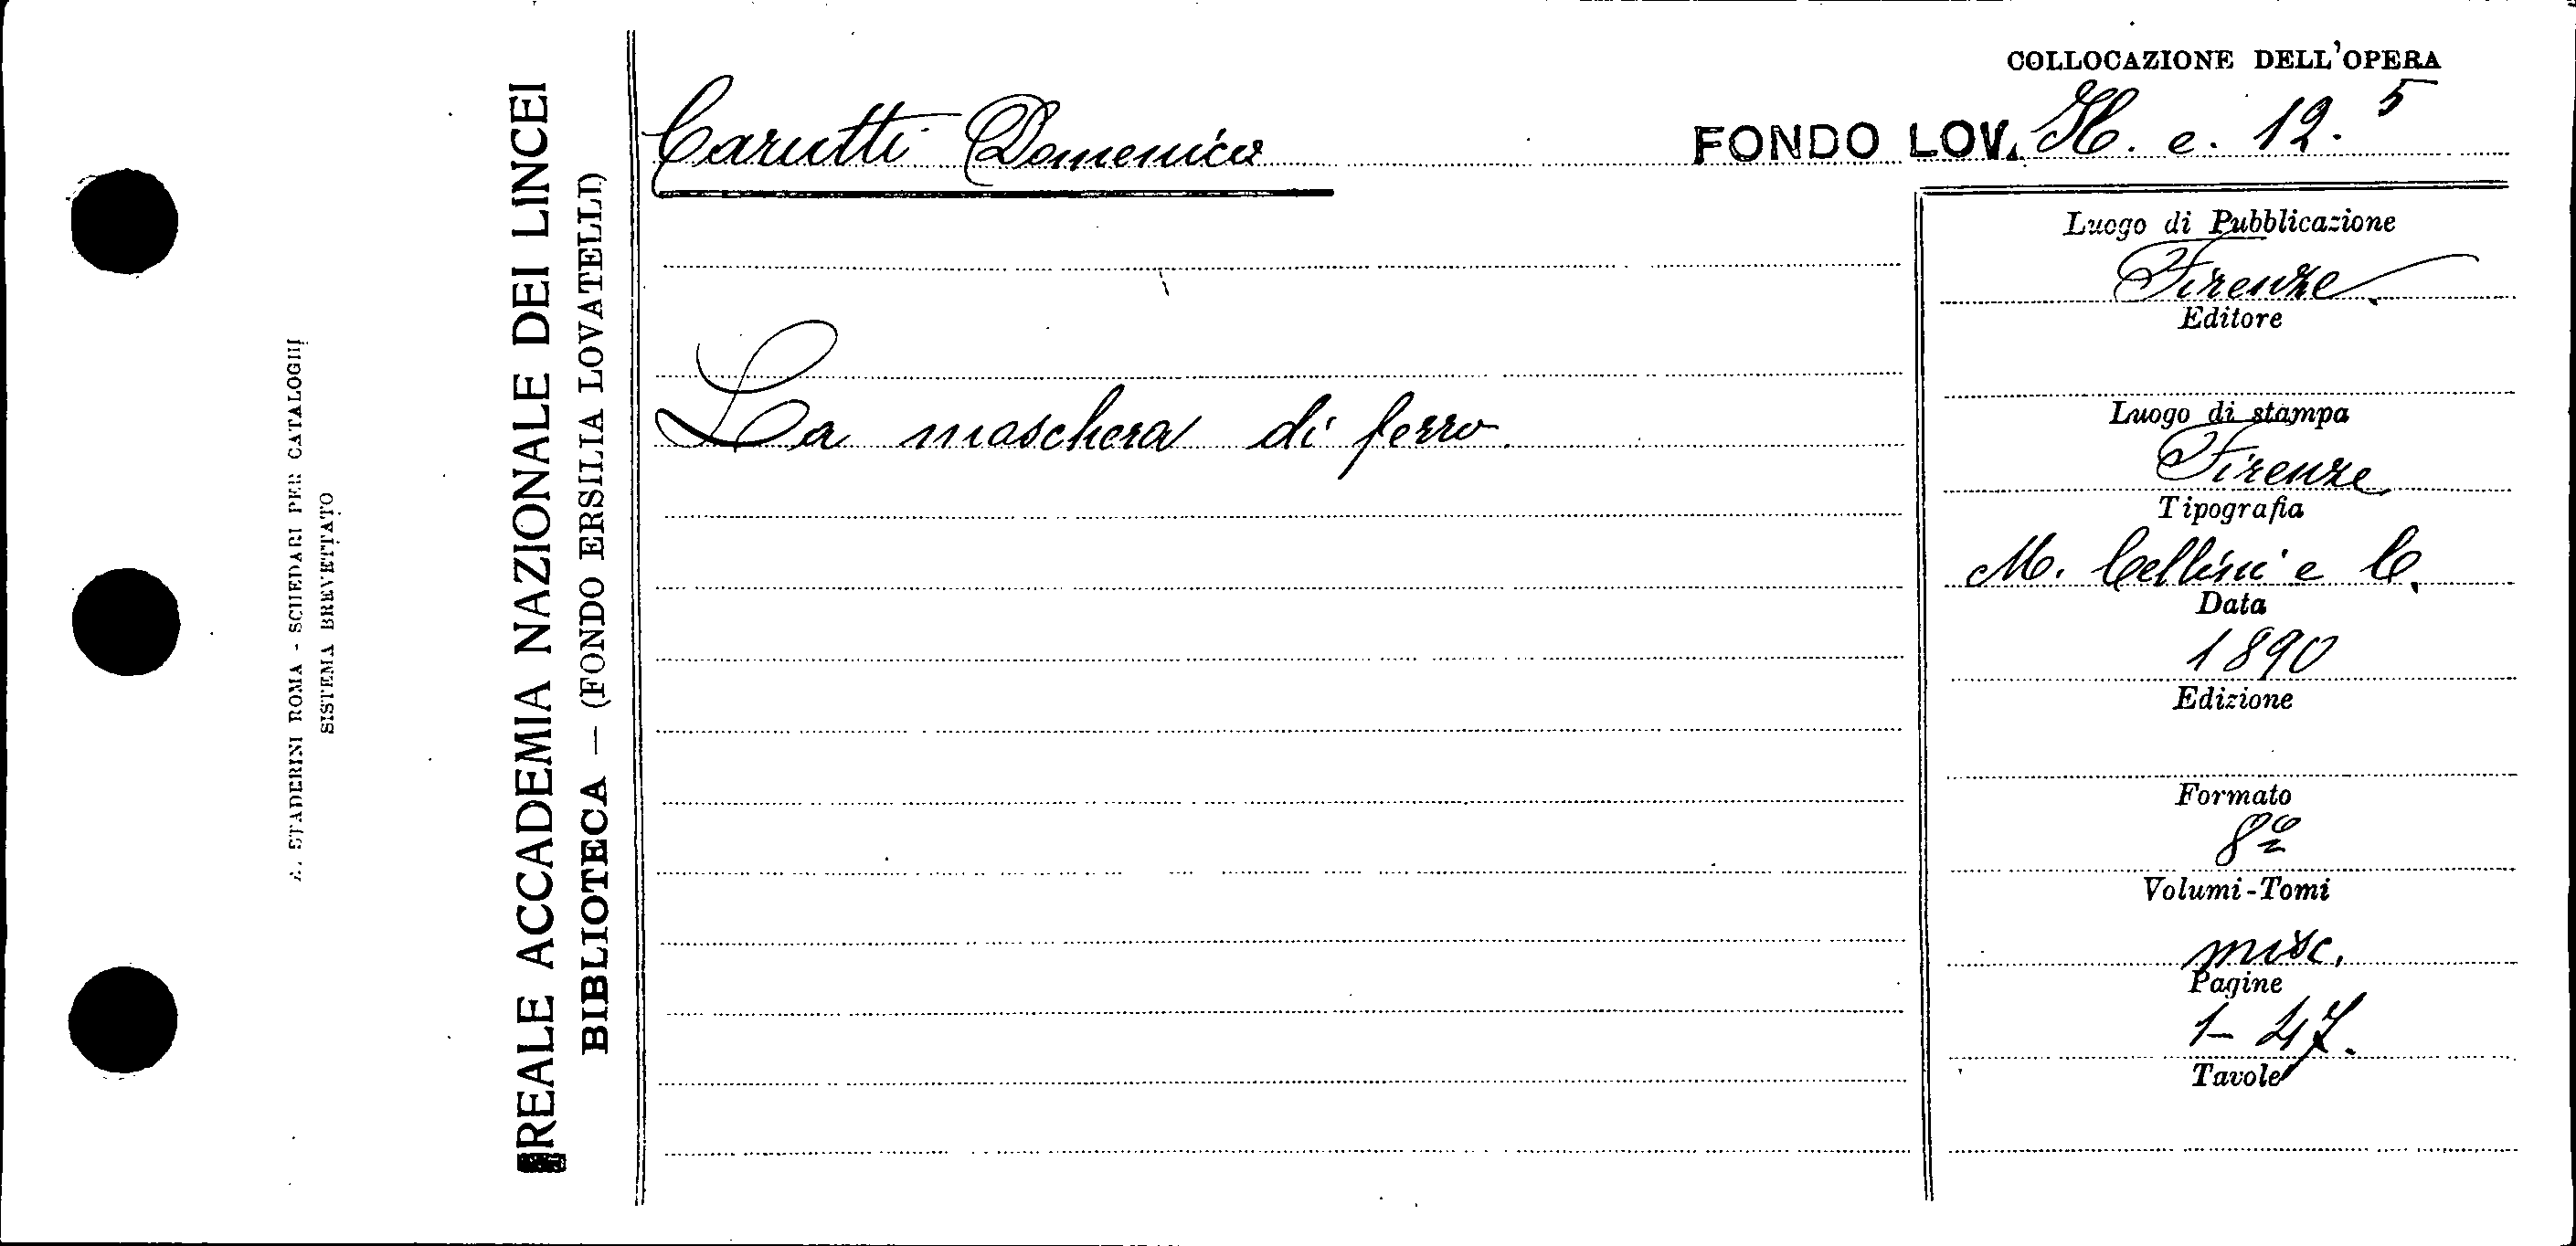 A. STADERINI ROMA - SCHEDARI PER CATALOGHI
SISTEMA BREVETTATO
REALE ACCADEMIA NAZIONALE DEI LINCEI
BIBLIOTECA — (FONDO ERSILIA LOVATELLI)
COLLOCAZIONE DELL'OPERA
Carutti Domenico
FONDO LOV. H. e. 12. 5
La maschera di ferro.
Luogo di Pubblicazione
Firenze
Editore
Luogo di stampa
Firenze
Tipografia
M. Cellini e C.
Data
1890
Edizione
Formato
8º
Volumi-Tomi
misc.
Pagine
1-47.
Tavole